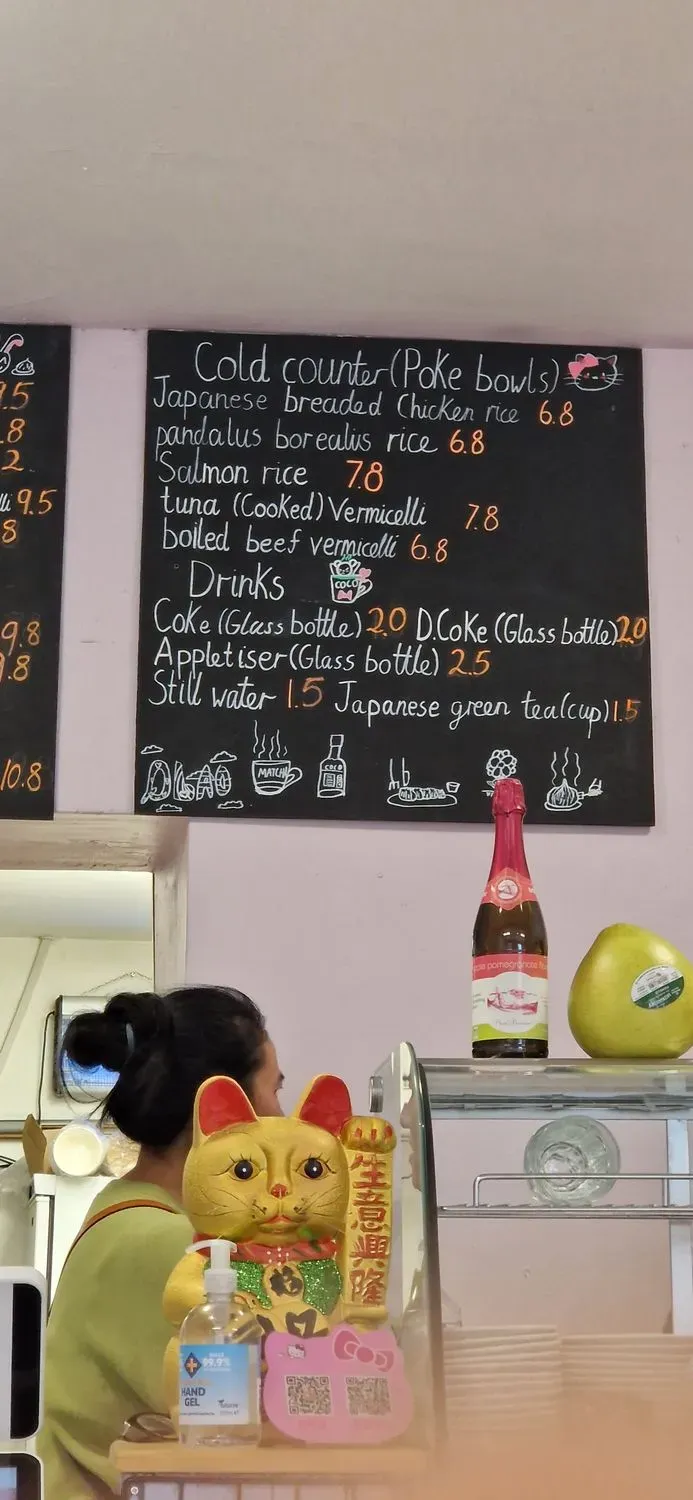 9.5
.8
2.
lli 9.5
8
9.8
9.8
10.8
Cold counter (Poke bowls)
Japanese breaded Chicken rice 6.8
pandalus borealis rice 6.8
Salmon rice 7.8
tuna (Cooked) Vermicelli 7.8
boiled beef vermicelli 6.8
Drinks
COCO
Coke (Glass bottle) 2.0 D.Coke (Glass bottle) 2.0
Appletiser (Glass bottle) 2.5
Still water 1.5 Japanese green tea (cup) 1.5
MATCHA
COCO
pomegranate
生意興隆
福
99.9%
HAND
GEL